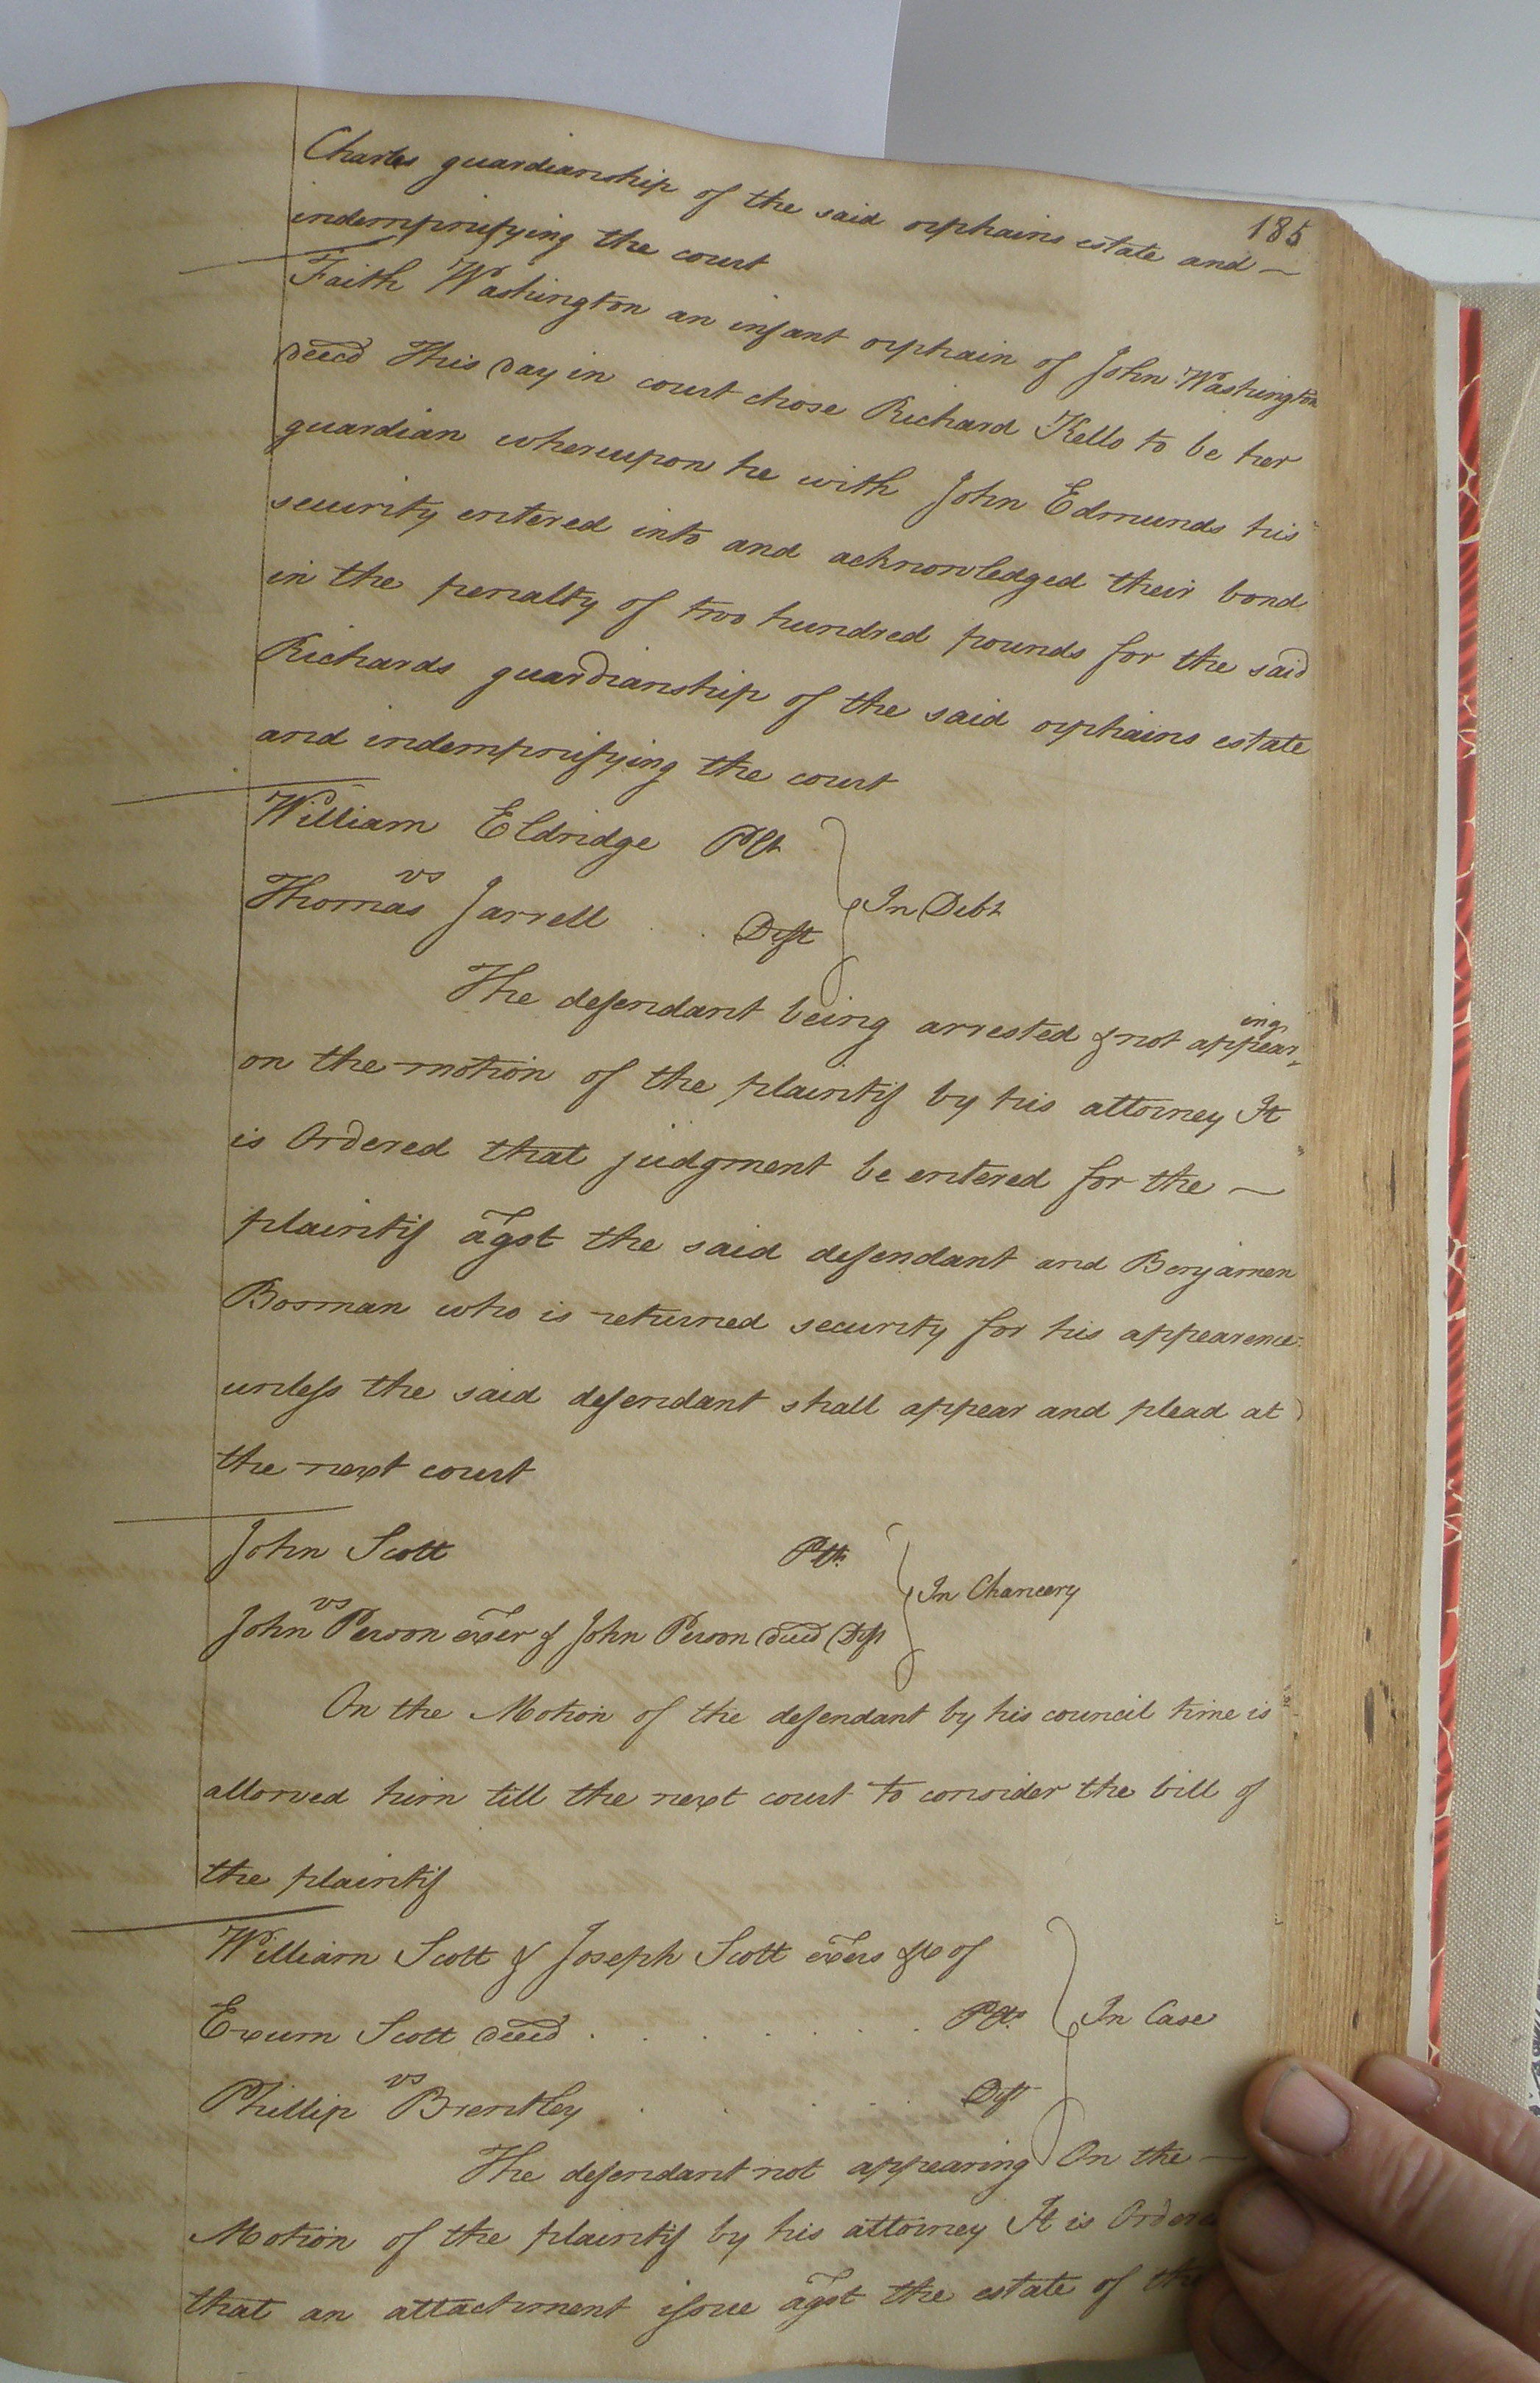 185
Charles guardianship of the said orphains estate and —
indempnifying the court
Faith Washington an infant orphain of John Washington
deced This day in court chose Richard Kello to be her
guardian whereupon he with John Edmunds his
security entered into and acknowledged their bond
in the penalty of two hundred pounds for the said
Richards guardianship of the said orphains estate
and indempnifying the court
William Eldridge Plt
vs
In Debt
Thomas Jarrell . . Deft
The defendant being arrested & not appearing
on the motion of the plaintif by his attorney It
is Ordered that judgment be entered for the —
plaintif agst the said defendant and Benjamen
Bosman who is returned security for his appearence
unless the said defendant shall appear and plead at
the next court
John Scott Plt.
vs
In Chancery
John Person exer of John Person deced Deft
On the Motion of the defendant by his council time is
allowed him till the next court to consider the bill of
the plaintif
William Scott & Joseph Scott exers &c of
Exum Scott deced . . . . . . Plts. In Case
vs
Phillip Brentley . . . . Deft
The defendant not appearing On the —
Motion of the plaintif by his attorney It is Ordered
that an attachment issue agst the estate of the